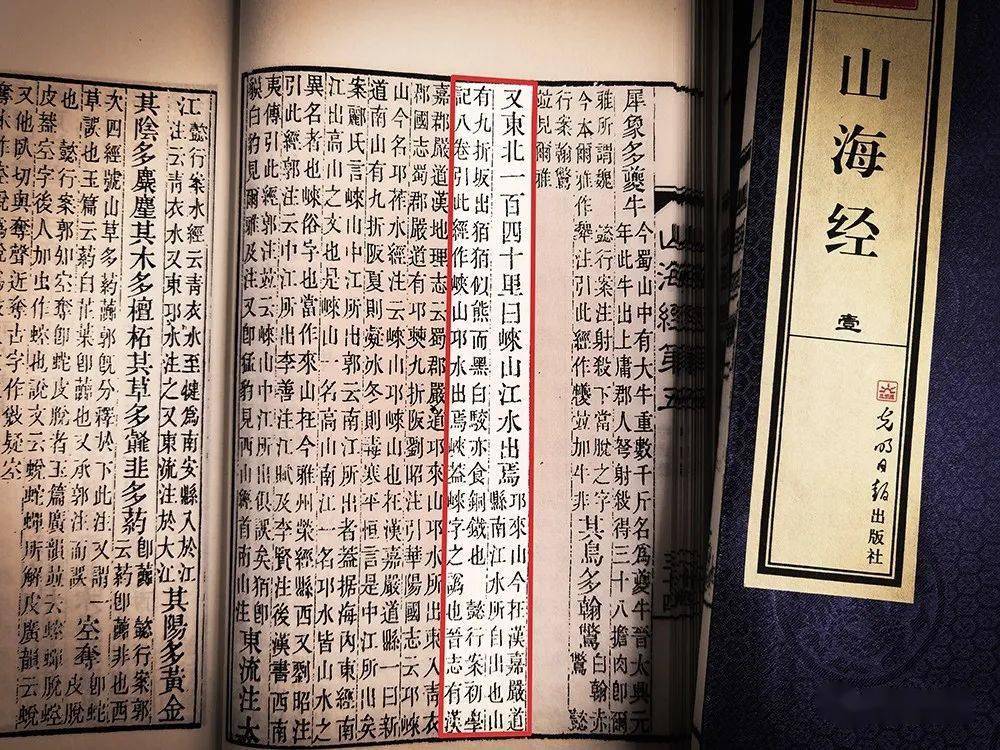 犀象多夔牛今蜀山中有大牛重數千斤名為夔牛晉太興元
年此牛出上庸郡人弩射殺得三十八擔肉即爾
雅所謂魏懿行案注射殺下當脫之字
今本爾雅作犩注引此經作㹎並加牛非其鳥多翰鷩白翰赤
鷩懿
行案翰鷩
並見爾雅
又東北一百四十里曰崍山江水出焉邛來山今在漢嘉嚴道
縣南江水所自出也山
有九折坂出狛狛似熊而黑白駮亦食銅鐵也懿行案初學
記八卷引此經作峽山邛水出焉峽蓋崍字之譌也晉志有漢
嘉郡嚴道漢地理志云蜀郡嚴道邛來山邛水所出東入青衣
郡國志蜀郡嚴道有邛僰九折阪劉昭注引華陽國志云邛崍
山今名邛莋水經注云崍山邛崍山也在漢嘉嚴道縣一曰新
道南山有九折阪夏則凝冰冬則毒寒平恒言是中江所出矣
案酈氏言崍山中江所出郭云南江所出者蓋據海內東經南
江出高山之文也是崍山一名高山南江一名邛水皆山水之
異名者也崍俗字也當作來山在今雅州榮經縣西又劉昭注
引此經郭注云中江所出李善注江賦及李賢注後漢書西南
夷傳引此經郭注並云崍山中江所出俱誤矣狛即
貘白豹見爾雅及注又即猛豹見西山經首南山注東流注大
江懿行案水經云青衣水至犍為南安縣入於江
注云青衣水又東邛水注之又東流注於大江其陽多黃金
其陰多麋麈其木多檀柘其草多䪥韭多葯即虈懿行案郭
云葯即虈非也西
次四經號山草多葯虈郭既分釋於下此注又謂一
草誤也玉篇云葯白芷葉即虈也又承郭注而誤空奪即蛇
皮脫
也懿行案郭知空奪即蛇皮脫者玉篇廣韻並云
皮蓋空字後人加虫作蛇也說文云蛻蛇蟬所解皮廣韻云蛻
又他臥切與奪聲近奪古字作敓疑空
山海經第五
山海经
壹
光明日報出版社